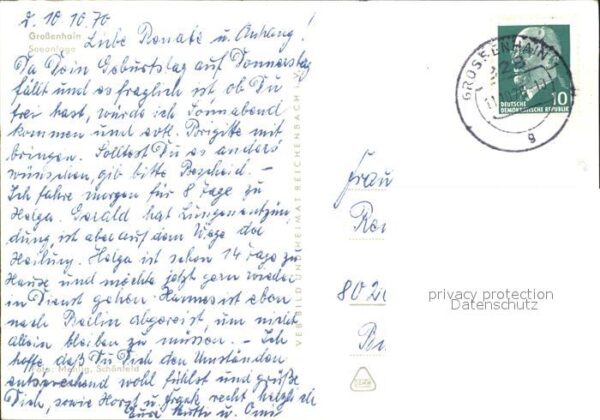 d. 10.10.70
Großenhain
Seeanlage
Liebe Renate u. Anhang!
Da Dein Geburtstag auf Donnerstag
fällt und es fraglich ist ob Du
frei hast, würde ich Sonnabend
kommen und evtl. Brigitte mit
bringen. Solltest Du es anders
wünschen, gib bitte Bescheid. –
Ich fahre morgen für 8 Tage zu
Helga. Gerald hat Lungenentzün-
dung, ist aber auf dem Wege der
Heilung. Helga ist schon 14 Tage zu
Hause und möchte jetzt gern wieder
in Dienst gehen. Hannes ist eben
nach Berlin abgereist, um nicht
allein bleiben zu müssen. – Ich
hoffe daß Du Dich den Umständen
Foto: Schönfeld
entsprechend wohl fühlst und grüße
Dich, sowie Horst u. Frank recht herzlich
Eure Mutti u. Omi
VEB BILD UND HEIMAT REICHENBACH I. V.
GROSSENHAIN
DEUTSCHE
DEMOKRATISCHE REPUBLIK
10
g
Frau
Ren
80
privacy protection
Datenschutz